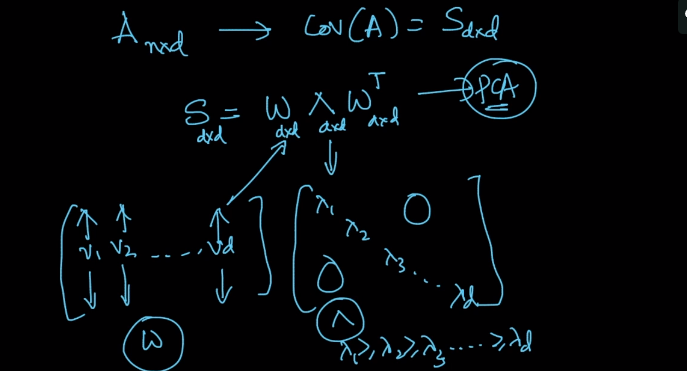 A n×d → Cov(A) = S d×d
S d×d = W d×d Λ d×d W^T d×d → PCA
[ v1 v2 ...., vd ] [ λ1 λ2 λ3 ... λd 0 0 ]
W Λ
λ1 ≥, λ2 ≥, λ3 ..... ≥, λd